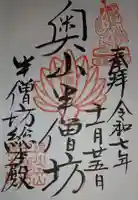 奉拝 令和七年
十一月廿五日
奥山半僧坊
半僧坊総本殿